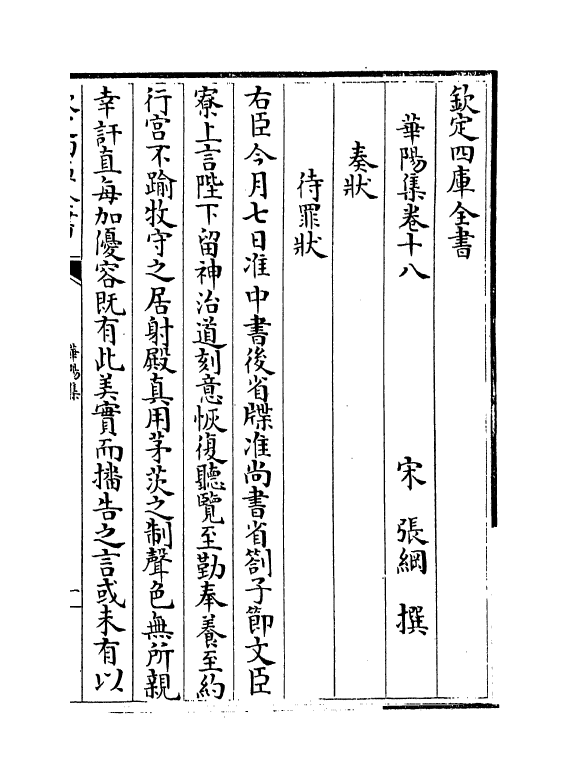 欽定四庫全書
華陽集卷十八
宋 張綱 撰
奏狀
待罪狀
右臣今月七日准中書後省牒准尚書省劄子節文臣
寮上言陛下留神治道刻意恢復聽覽至勤奉養至約
行宫不踰牧守之居射殿真用茅茨之制聲色無所親
幸訐直每加優容既有此美實而播告之言或未有以
華陽集
一